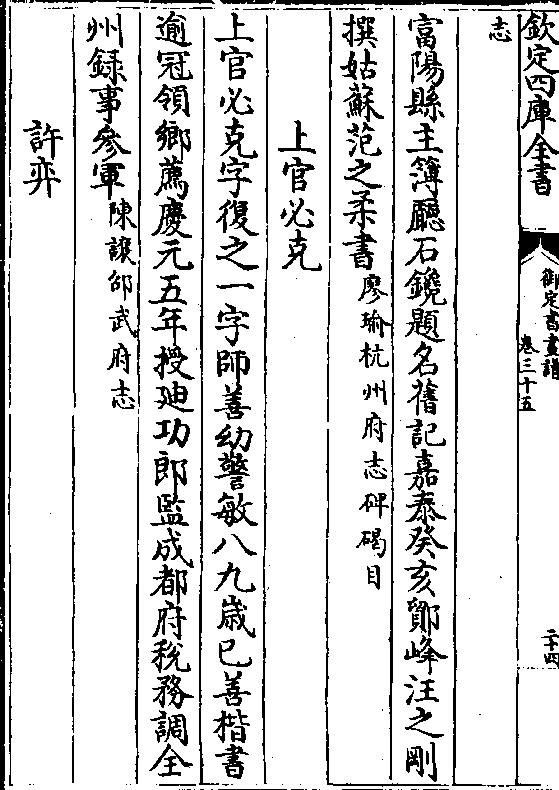 欽定四庫全書
御定書畫譜
卷三十五
二十四
志
富陽縣主簿廳石鑱題名舊記嘉泰癸亥鄮峰汪之剛
撰姑蘇范之柔書廖瑜杭州府志碑碣目
上官必克
上官必克字復之一字師善幼警敏八九歲已善楷書
逾冠領鄉薦慶元五年授廸功郎監成都府稅務調全
州錄事參軍陳讓邵武府志
許弈